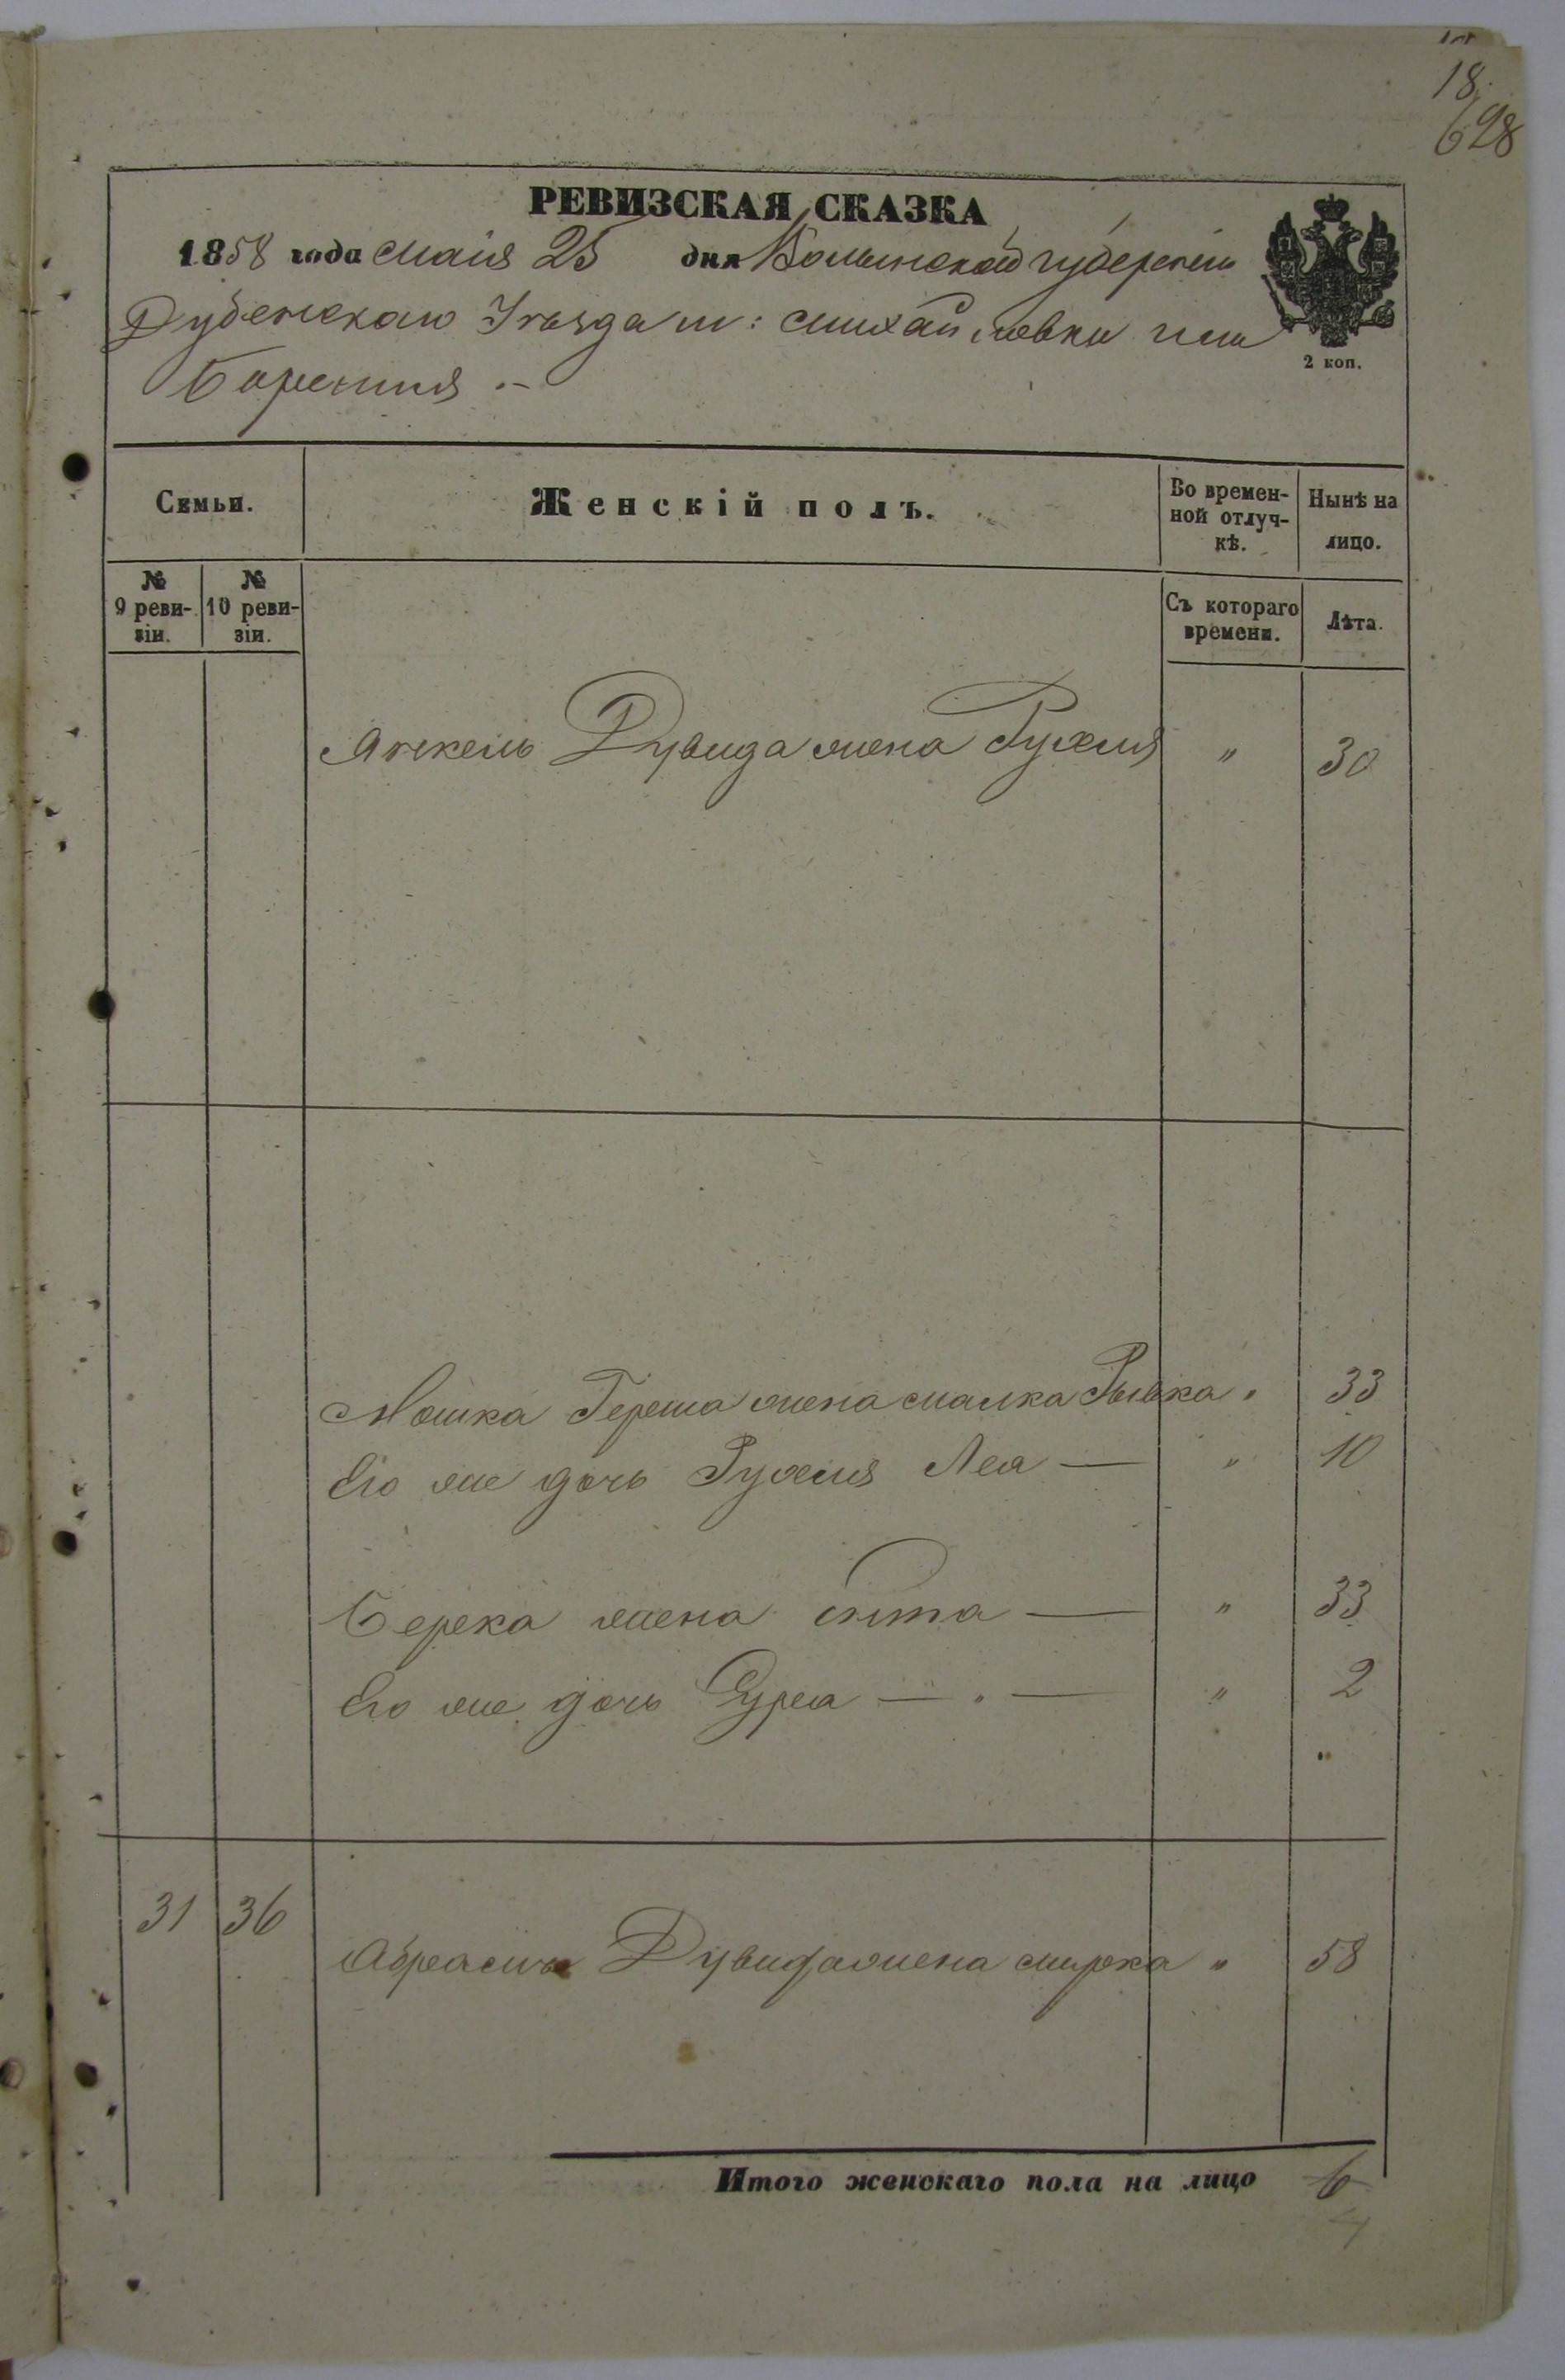 18.
698
РЕВИЗСКАЯ СКАЗКА
1858 года маія 25 дня Волынской губерніи
Дубенскаго Уѣзда м: Михайловки или
Берестія .-
2 коп.
Семьи. Женскій полъ. Во времен-ной отлуч-кѣ. Нынѣ на лицо.
№ 9 реви-зіи. № 10 реви-зіи. Съ котораго времени. Лѣта.
Янкель Дувида жена Рухля " 30
Мошка Герша жена Малка Рывка " 33
Его же дочь Рухля Леа — " 10
Берека жена Ента — " 33
Его же дочь Сура — . — " 2
31 36
Абрамъ Дувида жена Мирка " 58
Итого женскаго пола на лицо 6